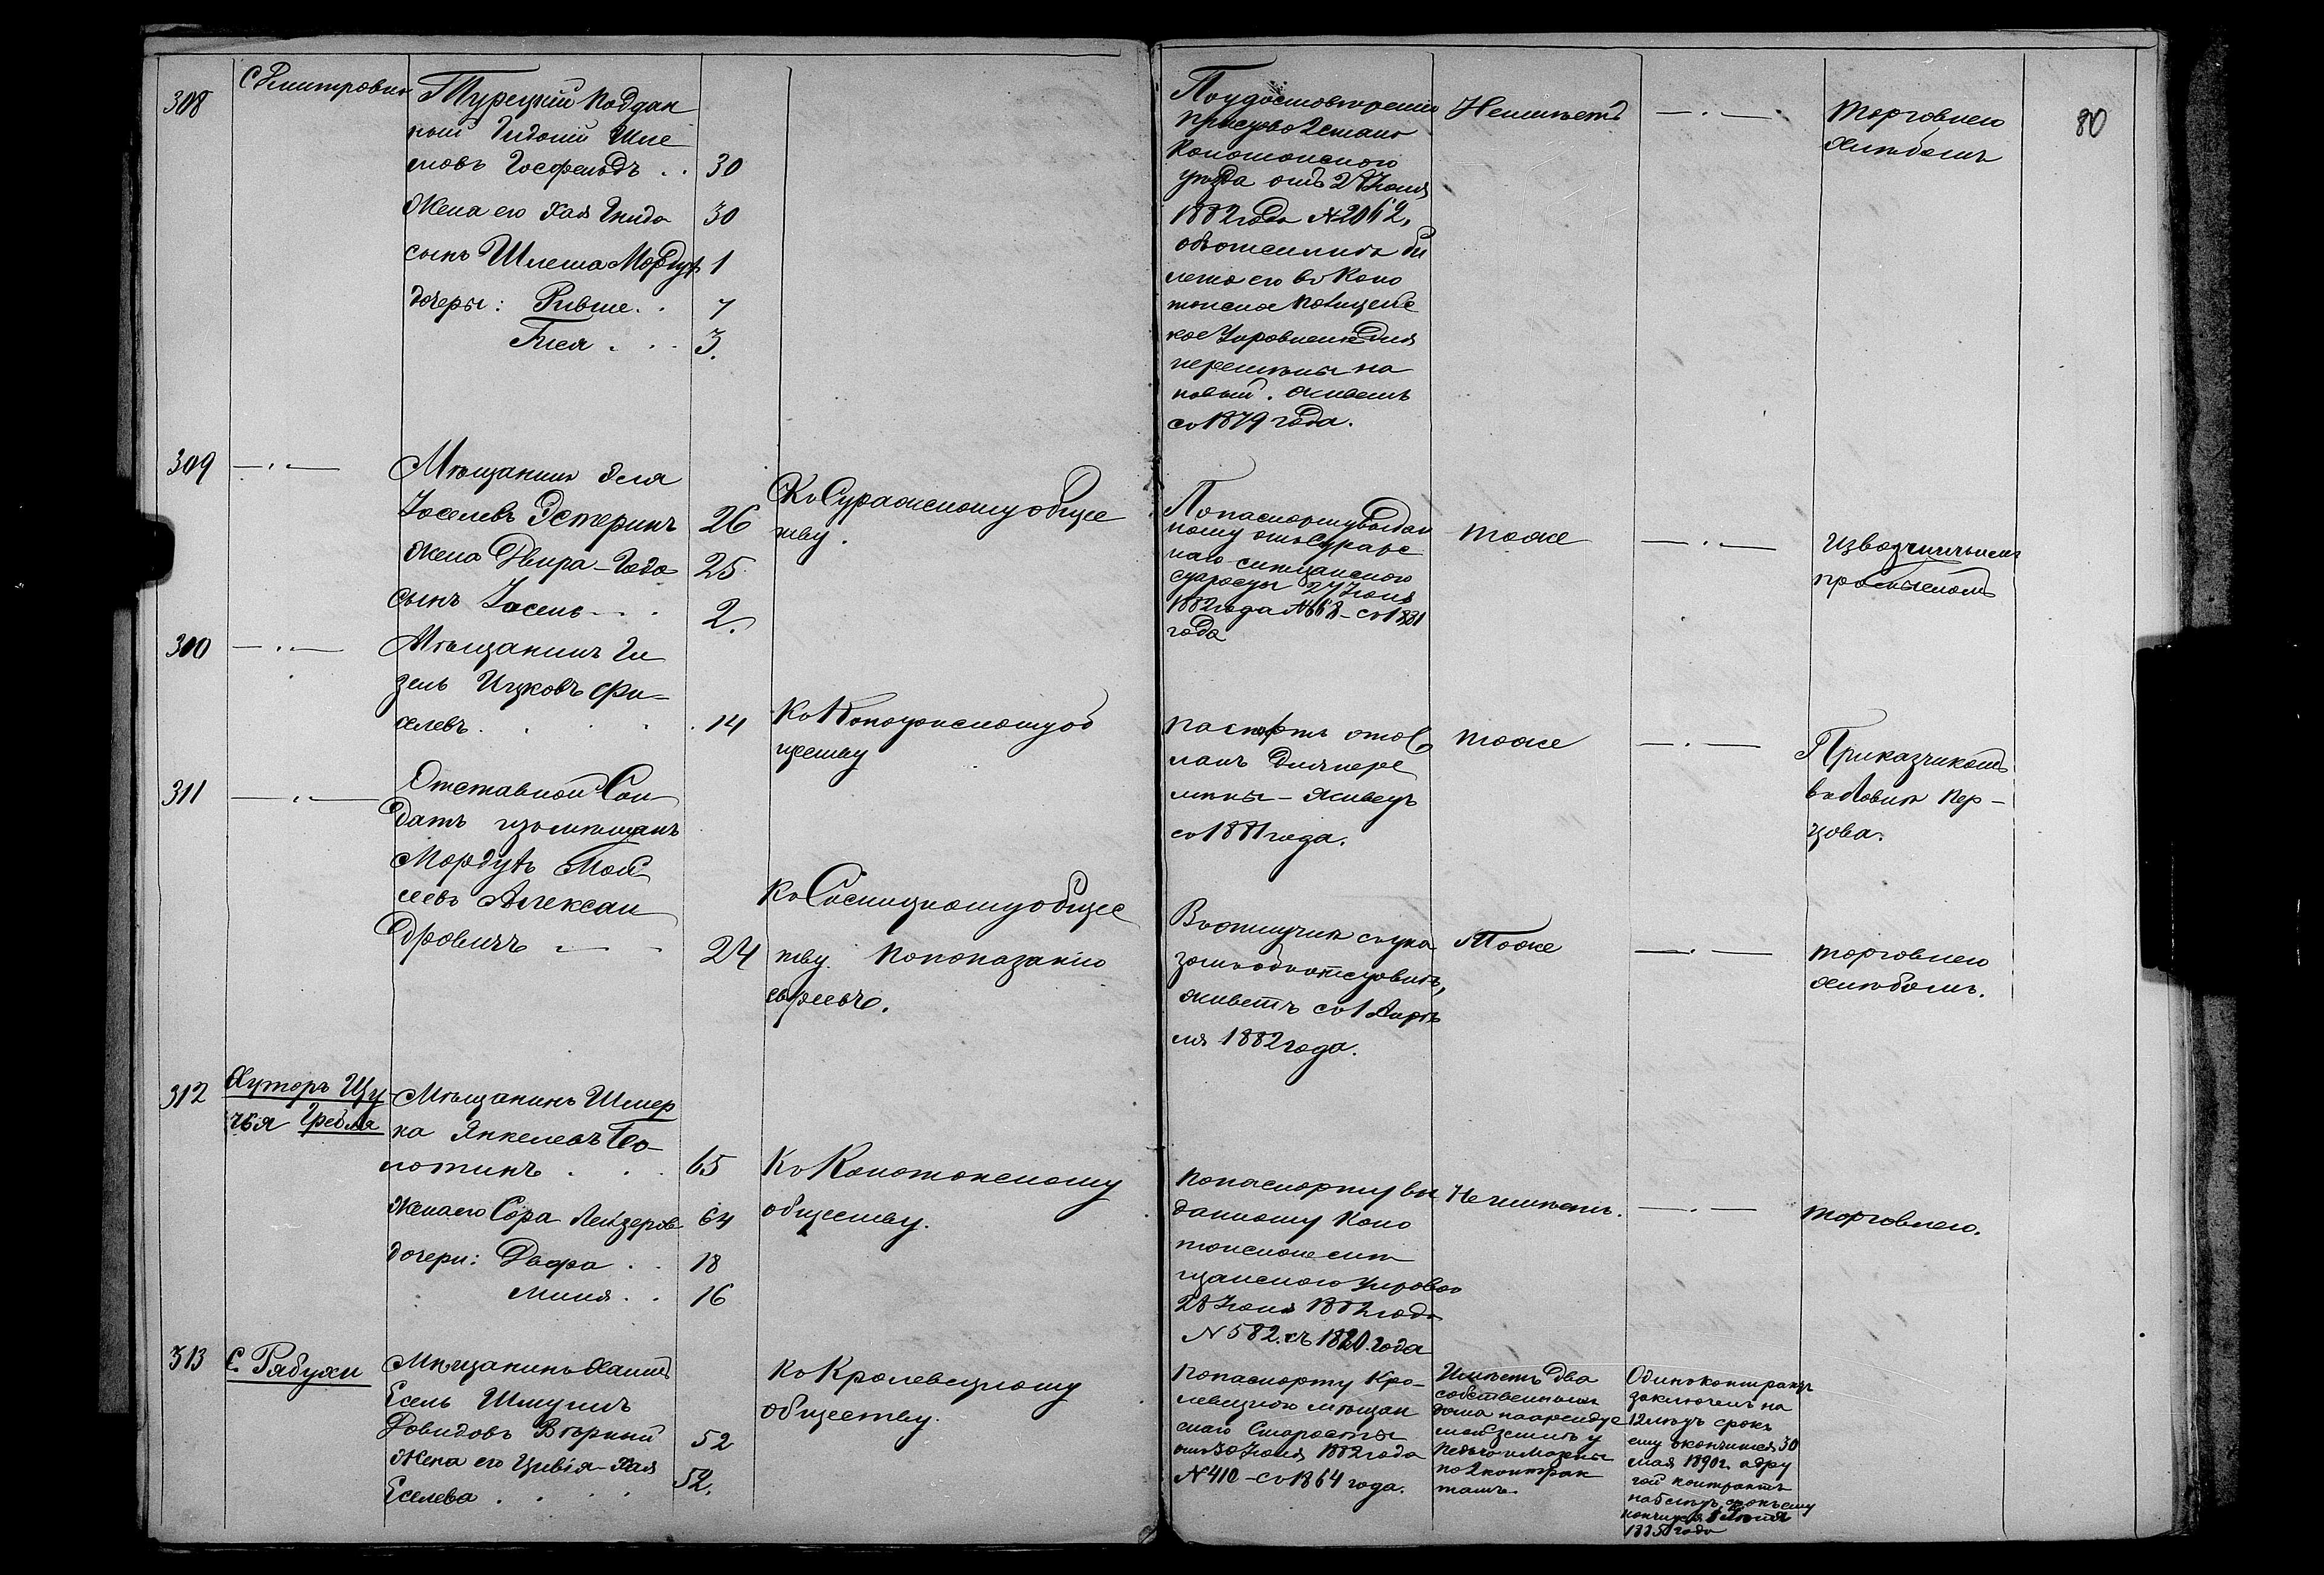 308
С Дмитровка
Турецкій поддан
ный Гидалій Шле
мовъ Госфельдъ . . 30
Жена его Хая Гинда 30
сынъ Шлема Мордух 1
дочеры: Ривше . . 7
Гися . . . 3.
По удостоверенію
пристава 2 стана
Конотопского
уезда отъ 28 Іюня
1882 года №2062,
обложеніи би
лета его въ Коно
топское Полицейс
кое Управленіе для
перемены на
новый. Живетъ
съ 1879 года.
Неимеетъ
— . —
торговлею
хлебомъ
80
309
— . —
Мещанинъ
Іоселевъ Эстеринъ 26
жена Двира-Года 25
сынъ Іосель . . 2.
Къ Суражскому общес
тву.
По паспорту выдан
ному отъ Сураж
наго мещанского
старосты 27 Іюня
1882 года №668 - съ 1881
года
тоже
— . —
извозчичьимъ
промысломъ
300
— . —
Мещанинъ Ги
зель Ицковъ Фи-
селевъ . . . . 14
Къ Конотопскому об
ществу
паспортъ отос
ланъ для пере
мены - живетъ
съ 1881 года.
тоже
— . —
Приказчикомъ
въ лавке Пер-
цова.
311
— . —
Отставной Сол
датъ изъ мещанъ
Мордухъ Мой
сеевъ Алексан
дровичъ . — . 24
Къ Сосницкому общес
тву. по показанію
евреевъ.
Въ отпуску съ ука
зомъ объ отставке,
живетъ съ 1 Апре
ля 1882 года.
Тоже
— . —
торговлею
хлебомъ.
312
Хуторъ Щу
чья Гребля
Мещанинъ Шмер
ка Янкелевъ
лотинъ . . . 65
Жена его Сора Лейзеров. 64
дочери: Двора . . 18
Миня . . 16
Къ Конотопскому
обществу.
По паспорту вы
данному Коно
топскою мещ
щанскою управою
28 Іюня 1882 года
№ 582. съ 1820. года
Не имеетъ.
— . —
торговлею.
313
С. Рябухи
Мещанинъ Хаимъ
Есель Шмуилъ
Довидовъ Вторый 52
Жена его Цивія-Хая
Еселева . . . . 52.
Къ Кролевецкому
обществу.
По паспорту Кро-
левецкого мещан
скаго Старосты
отъ 30 Іюня 1882 года
№410 - съ 1864 года.
Имеетъ два
собственныхъ
дома на арендуе
мой земле у
по 2 контрак
тамъ.
Одинъ контрактъ
заключенъ на
12 летъ срокъ
ему окончится 30
мая 1890 г. а дру
гой контрактъ
на 6 летъ, срокъ ему
кончится
1885 года